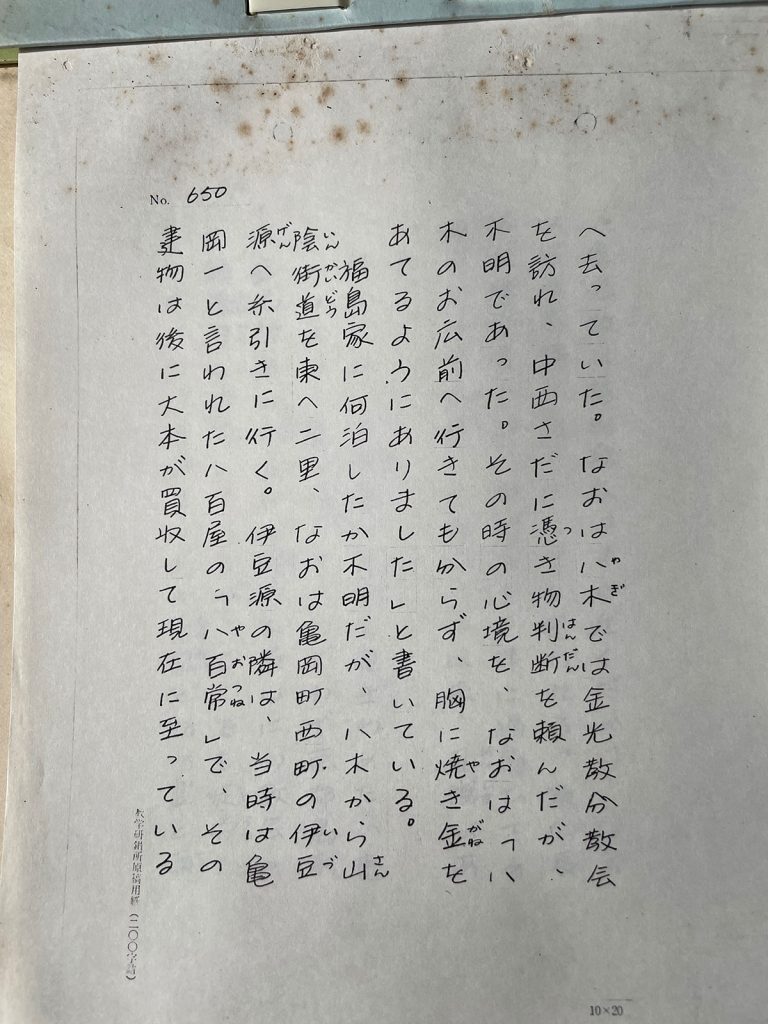 No. 650
へ去っていた。なおは八木では金光教分教会
を訪れ、中西さだに憑き物判断を頼んだが、
不明であった。その時の心境を、なおは「八
木のお広前へ行きてもわからず、胸に焼き金を
あてるようにありました」と書いている。
福島家に何泊したか不明だが、八木から山
陰街道を東へ二里、なおは亀岡町西町の伊豆
源へ糸引きに行く。伊豆源の隣は、当時は亀
岡一と言われた八百屋の「八百常」で、その
建物は後に大本が買収して現在に至っている
教学研鑽所原稿用紙(二〇〇字詰)
10×20